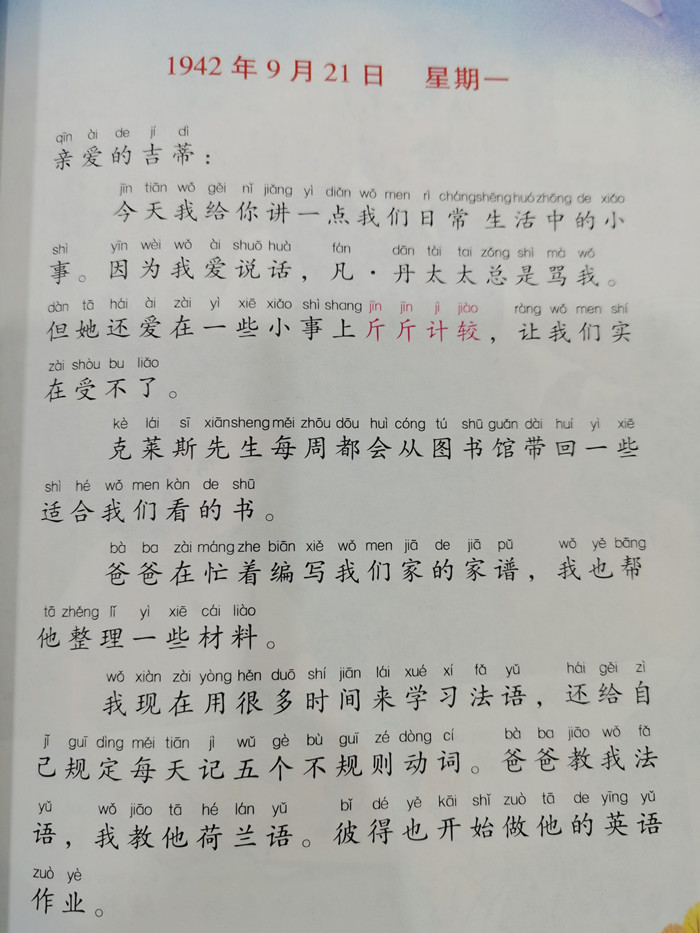 1942 年 9 月 21 日 星期一
qīn ài de jí dì
亲爱的吉蒂：
jīn tiān wǒ gěi nǐ jiǎng yì diǎn wǒ men rì cháng shēng huó zhōng de xiǎo
今天我给你讲一点我们日常生活中的小
shì yīn wèi wǒ ài shuō huà fán dān tài tai zǒng shì mà wǒ
事。因为我爱说话，凡·丹太太总是骂我。
dàn tā hái ài zài yì xiē xiǎo shì shang jīn jīn jì jiào ràng wǒ men shí
但她还爱在一些小事上斤斤计较，让我们实
zài shòu bu liǎo
在受不了。
kè lái sī xiān sheng měi zhōu dōu huì cóng tú shū guǎn dài huí yì xiē
克莱斯先生每周都会从图书馆带回一些
shì hé wǒ men kàn de shū
适合我们看的书。
bà ba zài máng zhe biān xiě wǒ men jiā de jiā pǔ wǒ yě bāng
爸爸在忙着编写我们家的家谱，我也帮
tā zhěng lǐ yì xiē cái liào
他整理一些材料。
wǒ xiàn zài yòng hěn duō shí jiān lái xué xí fǎ yǔ hái gěi zì
我现在用很多时间来学习法语，还给自
jǐ guī dìng měi tiān jì wǔ gè bù guī zé dòng cí bà ba jiāo wǒ fǎ
己规定每天记五个不规则动词。爸爸教我法
yǔ wǒ jiāo tā hé lán yǔ bǐ dé yě kāi shǐ zuò tā de yīng yǔ
语，我教他荷兰语。彼得也开始做他的英语
zuò yè
作业。